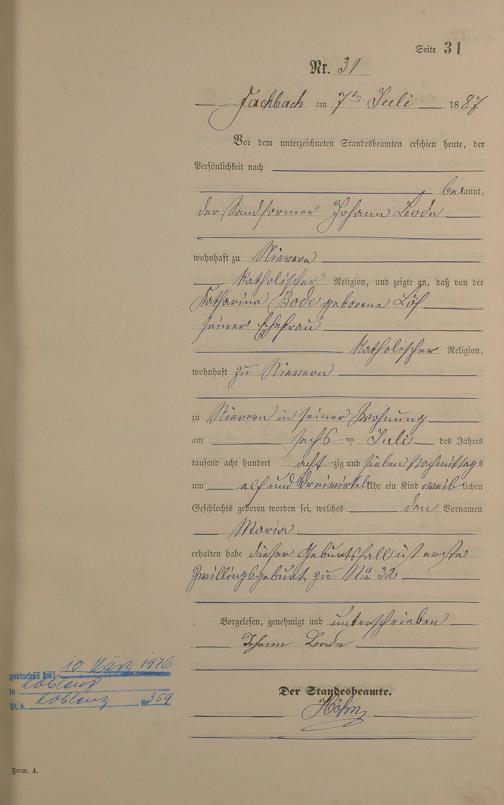 Seite 31
Nr. 31
Fachbach am 7ten Juli 1887
Vor dem unterzeichneten Standesbeamten erschien heute, der
Persönlichkeit nach
bekannt,
der Sandformer Johann Bode
wohnhaft zu Nievern
katholischer Religion, und zeigte an, daß von der
Katharina Bode geborene Löf
seiner Ehefrau
katholischer Religion,
wohnhaft zu Nievern
zu Nievern in seiner Wohnung
am sechs ten Juli des Jahres
tausend acht hundert achtzig und sieben Nachmittags
um elf und dreiviertel Uhr ein Kind weiblichen
Geschlechts geboren worden sei, welches den Vornamen
Maria
erhalten habe dieser Geburtsfall ist erste
Zwillingsgeburt zu No 32
Vorgelesen, genehmigt und unterschrieben
Johann Bode
Der Standesbeamte.
Höhn
gestorben am 10 März 1976
in Koblenz
St. A. Koblenz Nr 559
Form. A.